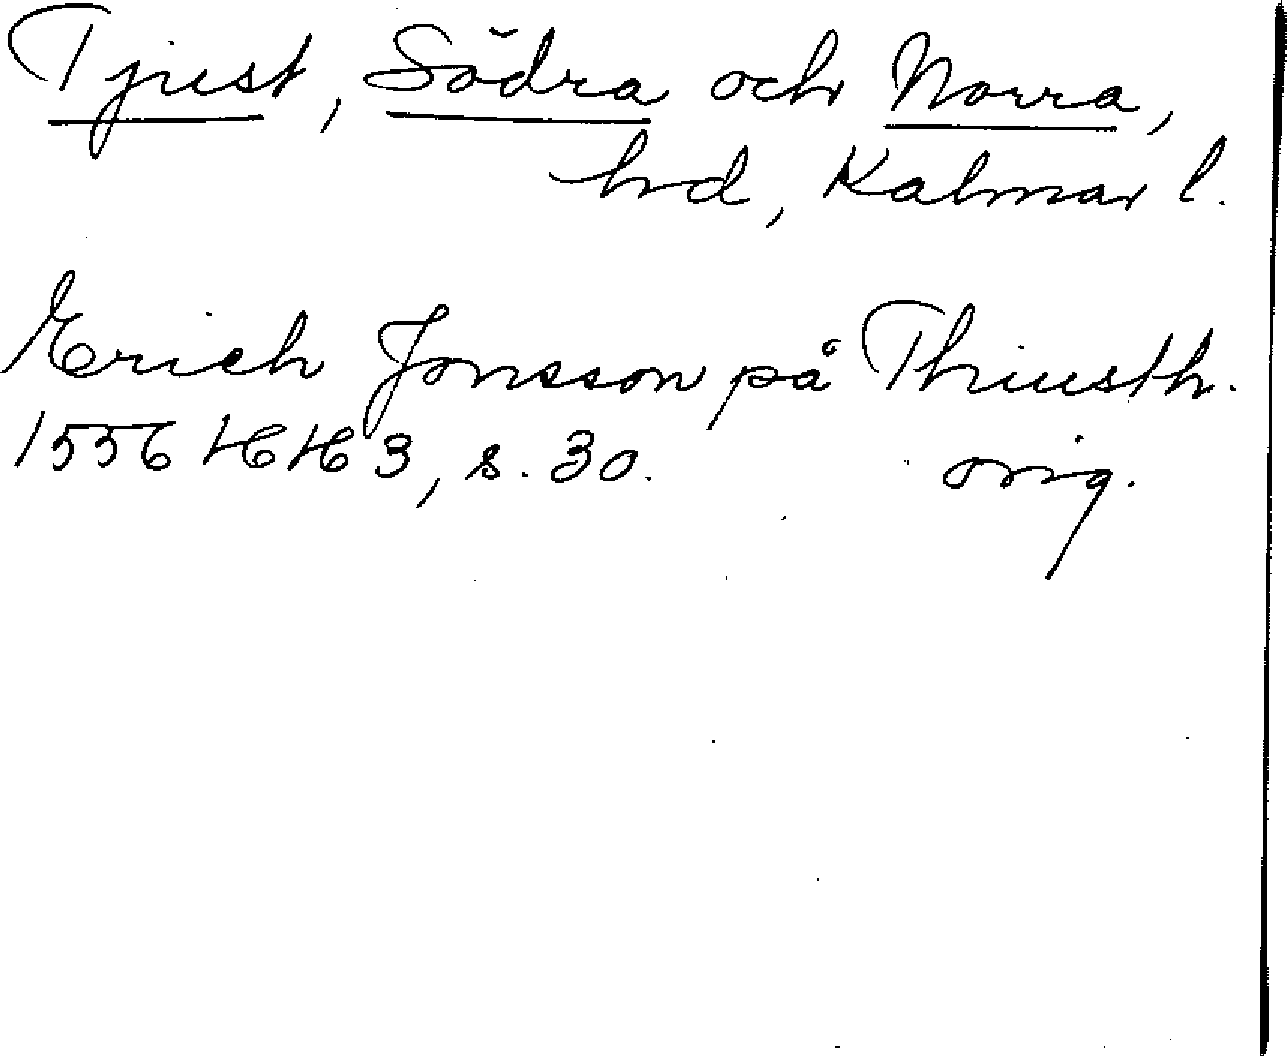 Tjust, Södra och Norra,
hrd, Kalmar l.
Erich Jonsson på Thiusth.
1556 HH 3, s. 30. orig.